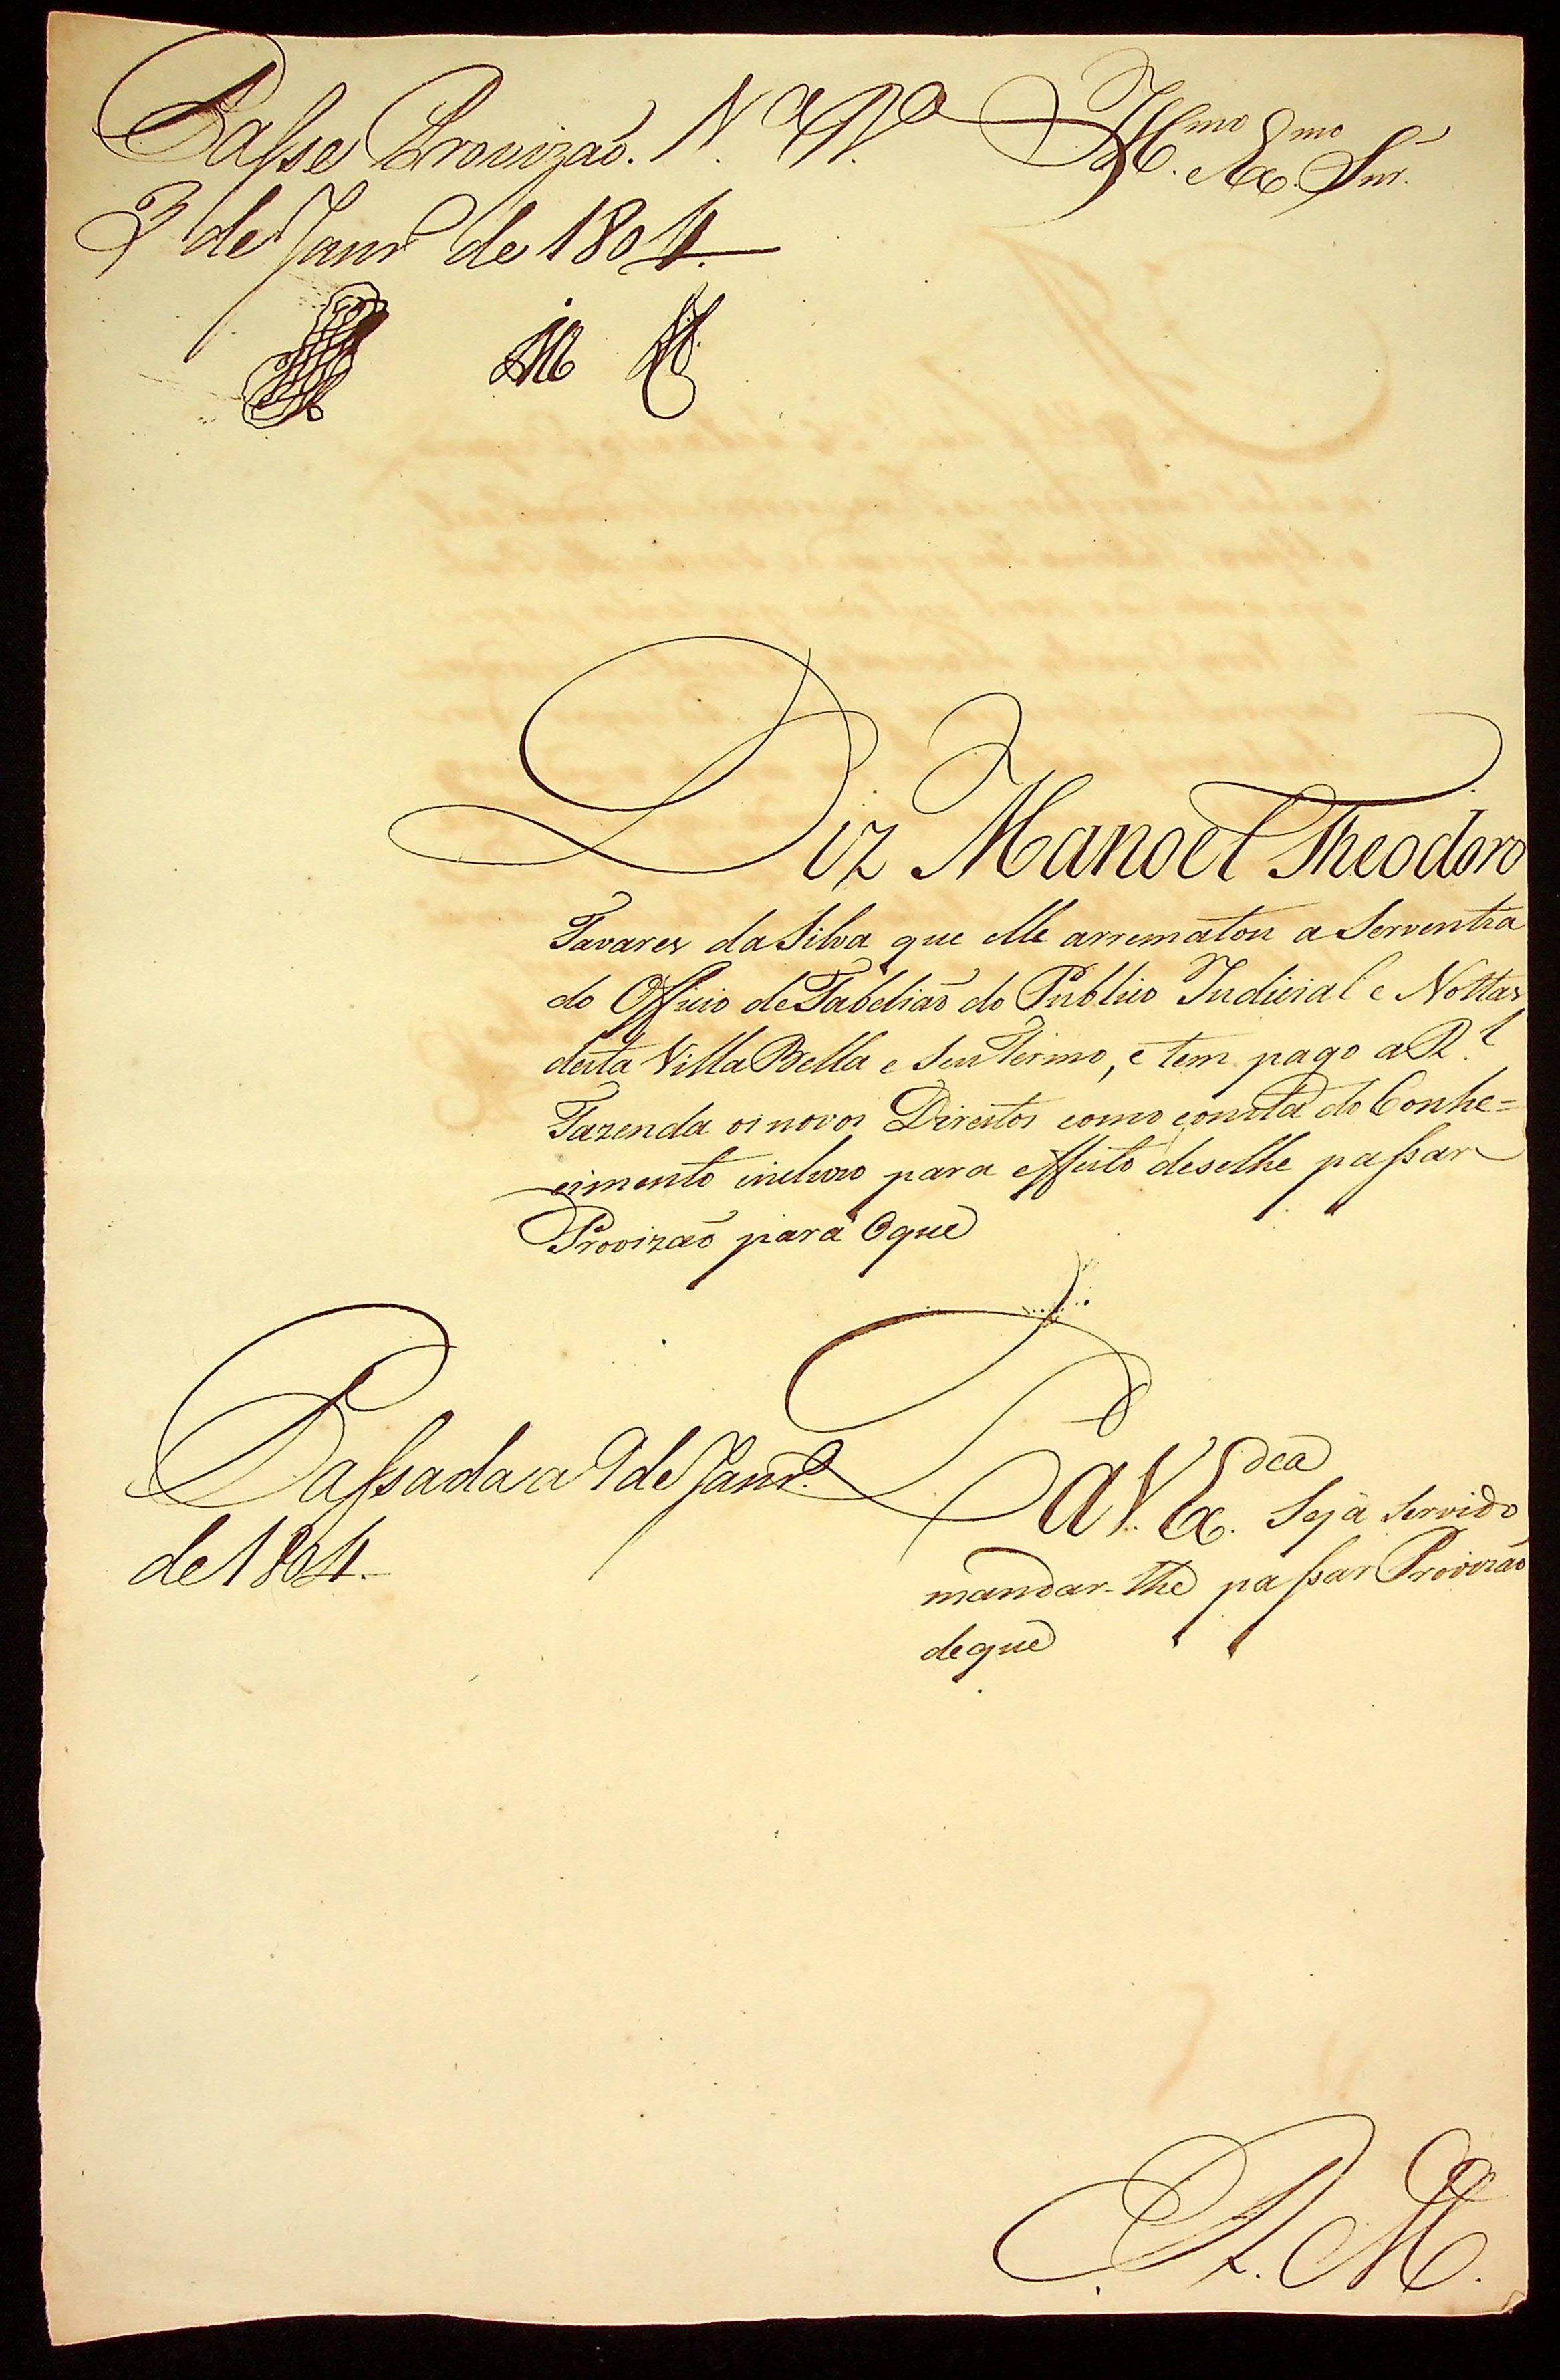 Passe Provizaõ. V.ª B.ª
3 de Janr.º de 1804.
Ill.mo Ex.mo Snr.
Diz Manoel Theodoro
Tavares da Silva que elle arrematou a Serventia
do Officio de Tabeliaõ do Publico Judicial e Nottas
desta Villa Bella e seu Termo, e tem pago a R.l
Fazenda os novos Direitos como consta do Conhe=
cimento incluzo para effeito de selhe passar
Provizaõ para o que
Passada a 9 de Janr.º
de 1804.
P a V. Ex.cia Seja servido
mandar-lhe passar Provizaõ
de que
E. R. M.